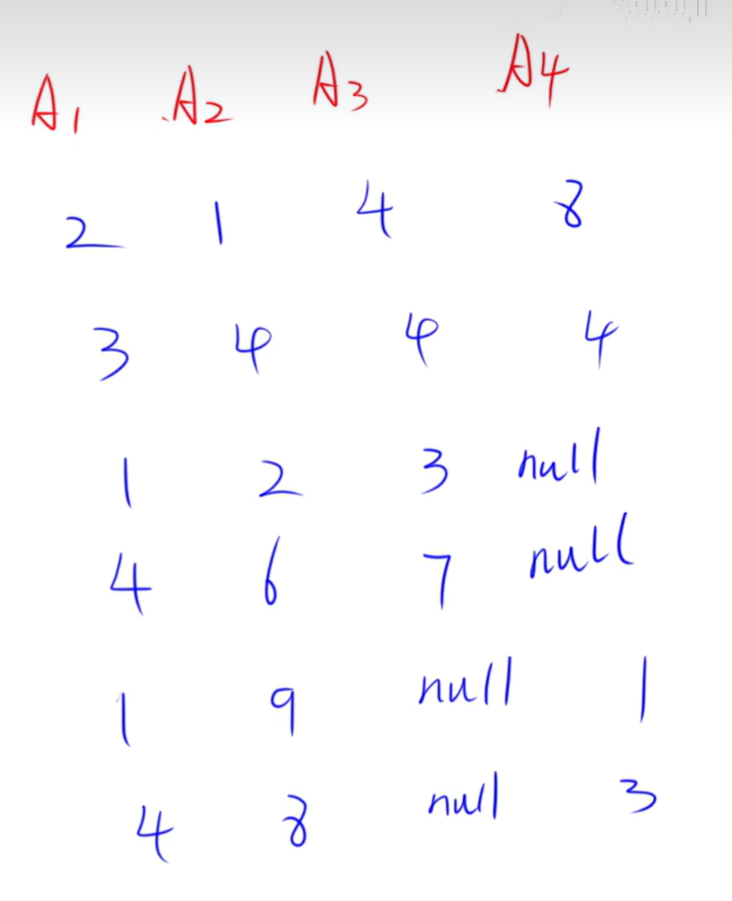 A1 A2 A3 A4
2 1 4 8
3 4 4 4
1 2 3 null
4 6 7 null
1 9 null 1
4 8 null 3